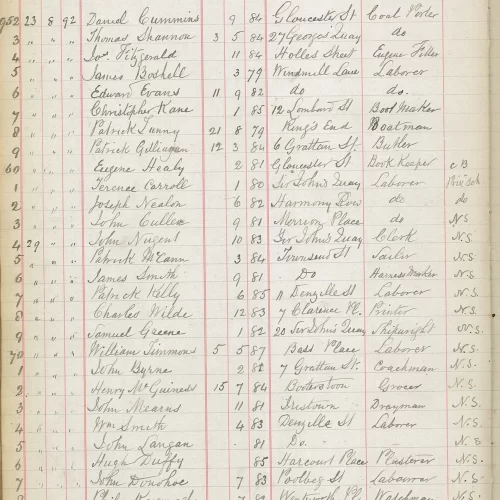 952 23 8 92 Daniel Cummins 9 84 Gloucester St Coal Porter
3 " " " Thomas Shannon 3 5 84 27 Georges Quay do
4 " " " Jos. Fitzgerald 11 84 Holles Street
5 " " " James Boshell 3 79 Windmill Lane Laborer
6 " " " Edward Evans 11 9 82 do do.
7 " " " Christopher Kane 1 85 12 Lombard St Boot Maker
8 " " " Patrick Tunny 21 8 79 King's End Boatman
9 " " " Patrick Gilligan 12 3 84 6 Grattan St. Butler
60 " " " Eugene Healy 2 81 Gloucester St Book Keeper C B
1 " " " Terence Carroll 1 80 Sir John's Quay Laborer
2 " " " Joseph Nealon 6 82 Harmony Row do do
3 " " " John Cullen 9 81 Merrion Place do N S
4 29 " " John Nugent 10 83 Sir John's Quay Clerk N.S.
5 " " " Patrick McCann 3 84 Townsend St Sailor N.S.
6 " " " James Smith 9 81 Do Harness Maker N.S.
7 " " " Patrick Kelly 6 85 11 Denzille St Laborer N.S.
8 " " " Charles Wilde 12 83 7 Clarence Pl. Printer N.S.
9 " " " Samuel Greene 1 82 20 Sir John's Quay Shipwright N.S.
70 " " " William Timmons 5 5 87 Bass Place Laborer N.S.
1 " " " John Byrne 2 82 7 Grattan St. Coachman N.S.
2 " " " Henry McGuiness 15 7 84 Booterstown Grocer N.S.
3 " " " John Mearns 11 81 Irishtown Drayman N.S.
4 " " " Wm Smith 4 83 Denzille St Laborer N.S.
5 " " " John Langan 81 Do. N S
6 " " " Hugh Duffy 85 Harcourt Place Plasterer N.S.
7 " " " John Donohoe 7 83 Poolbeg St Labourer N.S.
Wentworth Pl. Watchman